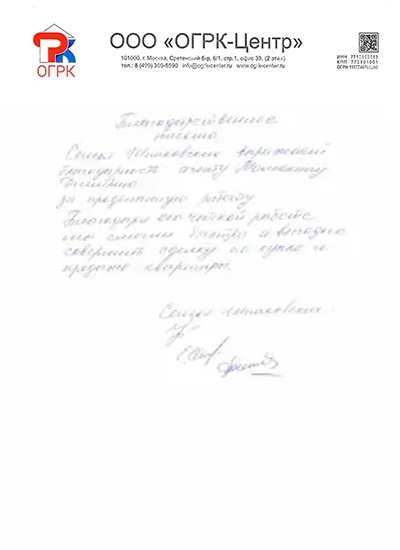 ОГРК
ООО «ОГРК-Центр»
101000, г. Москва, Сретенский б-р, 6/1, стр.1, офис 39, (2 этаж)
тел.: 8 (499) 399-5590 info@ogrk-center.ru www.ogrk-center.ru
ИНН
КПП
ОГРН
Благодарственное
письмо
Семья выражает
благодарность агенту
Дмитрию
за проделанную работу
Благодаря его чёткой работе
мы смогли быстро и выгодно
совершить сделку по купле и
продаже квартиры.
Семья